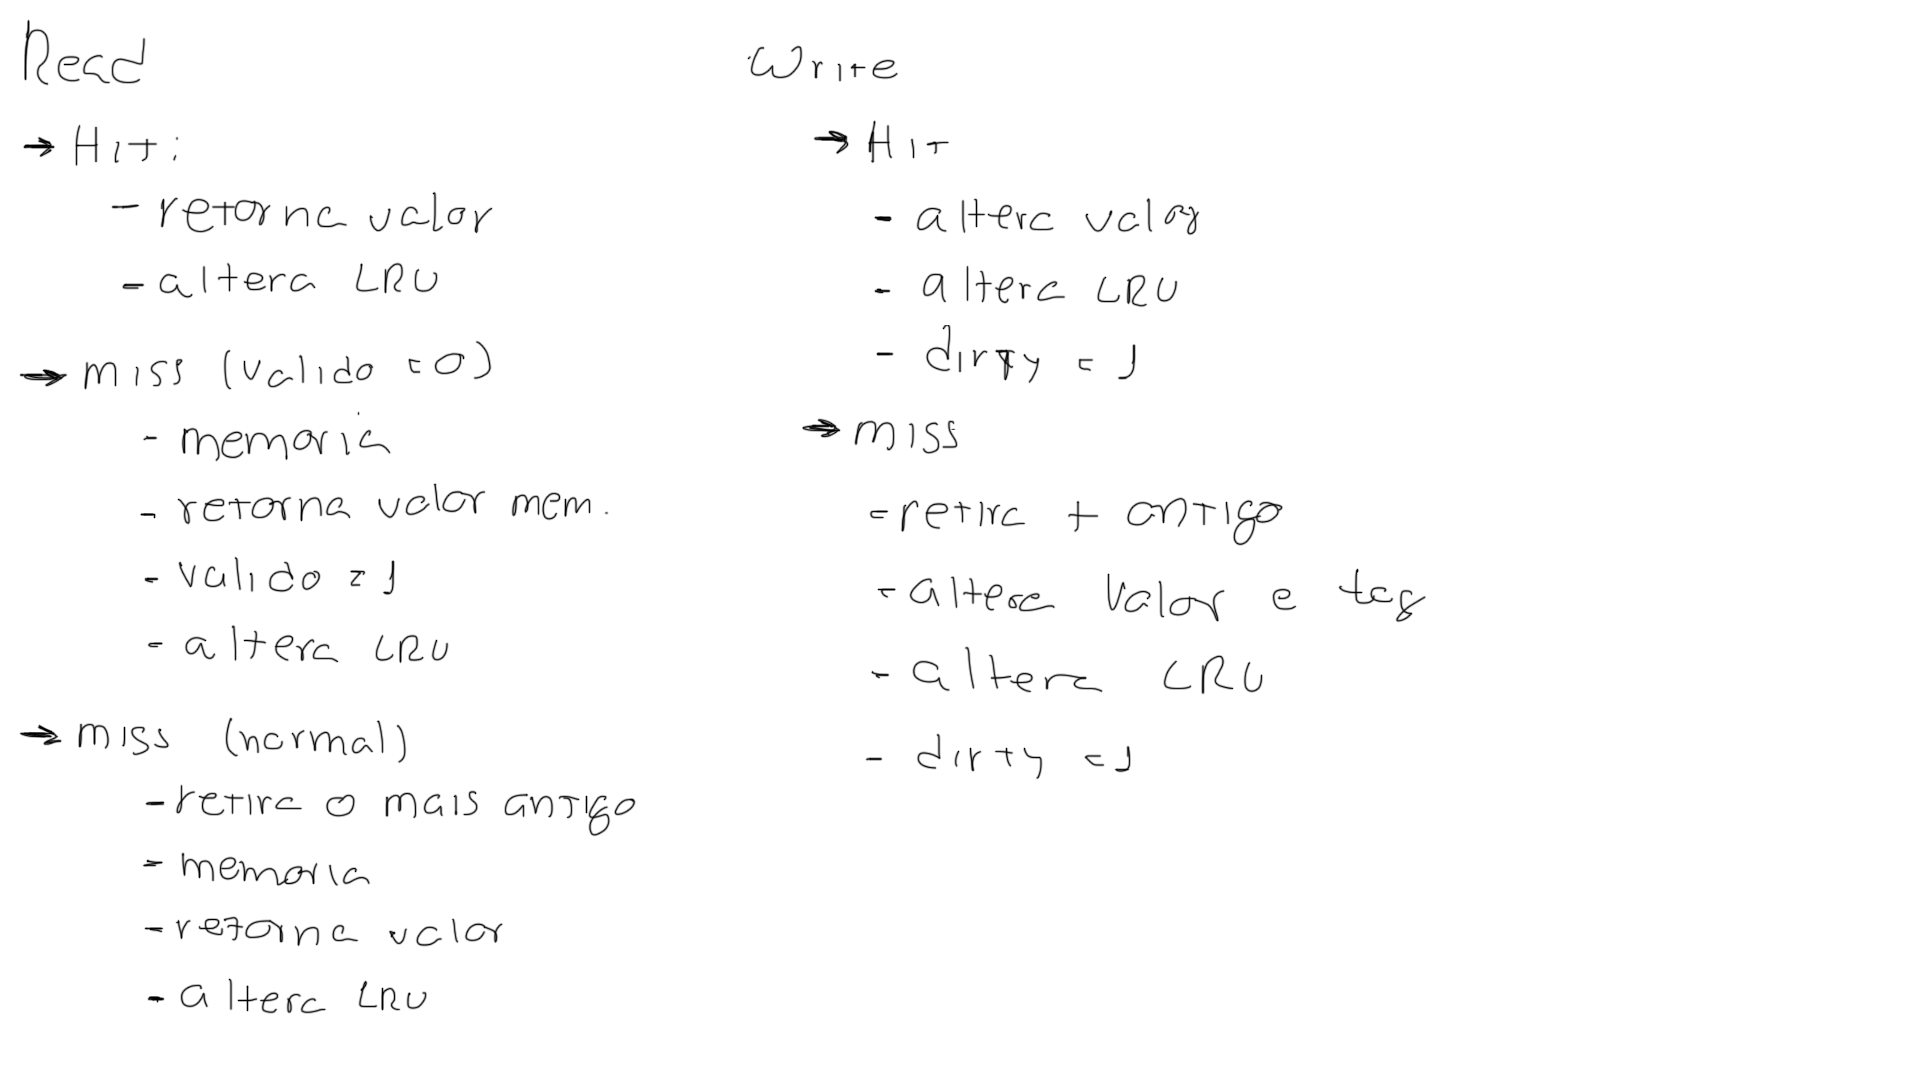 Read
→ Hit:
- retorna valor
- altera LRU
→ miss (valido = 0)
- memoria
- retorna valor mem.
- valido = 1
- altera LRU
→ miss (normal)
- retira o mais antigo
- memoria
- retorna valor
- altera LRU
Write
→ Hit
- altera valor
- altera LRU
- dirty = 1
→ miss
- retira + antigo
- altera valor e tag
- altera LRU
- dirty = 1